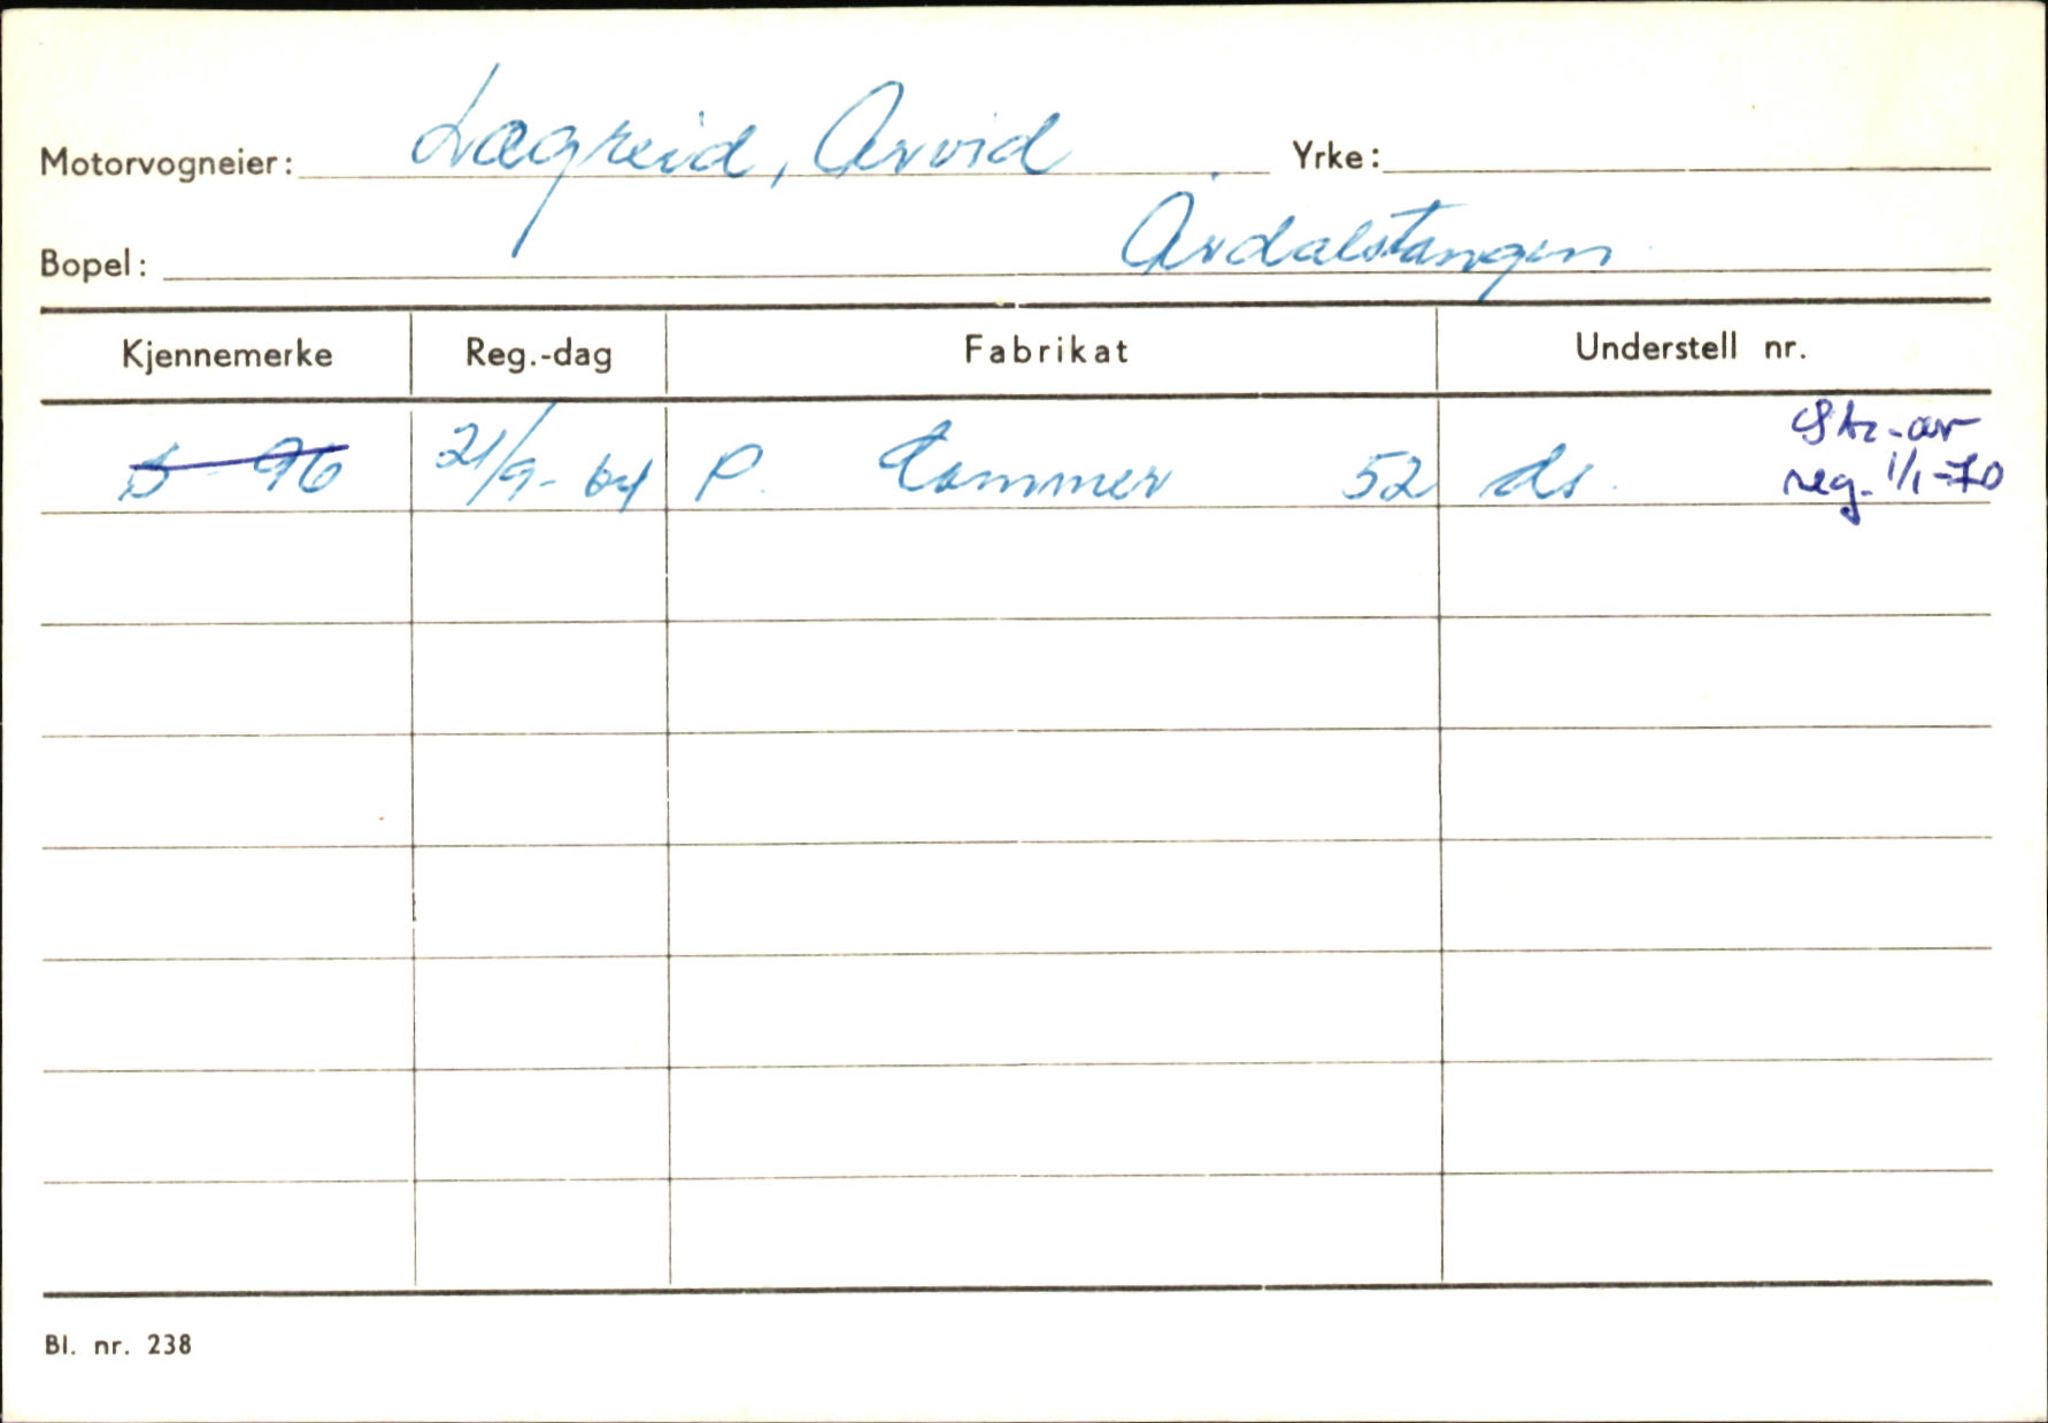 Motorvogneier: Lægreid, Arvid Yrke:
Bopel: Årdalstangen
Kjennemerke Reg.-dag Fabrikat Understell nr.
S 96 21/9-64 P. Commer 52 ds. Str. av
reg. 1/1-70
Bl. nr. 238